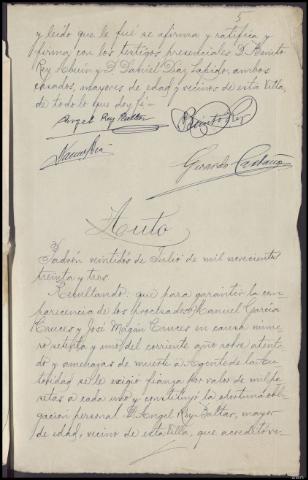 5
y leido que le fué se afirma y ratifica y
firma con los testigos presenciales D. Benito
Rey Abuin y D. Daniel Diaz Lapido, ambos
casados, mayores de edad y vecinos de esta Villa,
de todo lo que doy fé=
Angel Rey Baltar Benito Rey
Daniel Diaz
Gerardo Castaño
Auto
Padrón veintidos de Julio de mil novecientos
treinta y tres
Resultando: que para garantir la com-
parecencia de los procesados Manuel Garcia
Cruces y José Magán Cruces en causa núme-
ro setenta y uno del corriente año sobre atenta-
do y amenazas de muerte a Agente de la Au-
toridad se le exigio fianza por valor de mil pe-
setas a cada uno y constituyó la oportuna obli-
gacion personal D. Angel Rey Baltar, mayor
de edad, vecino de esta Villa, que acredito se-